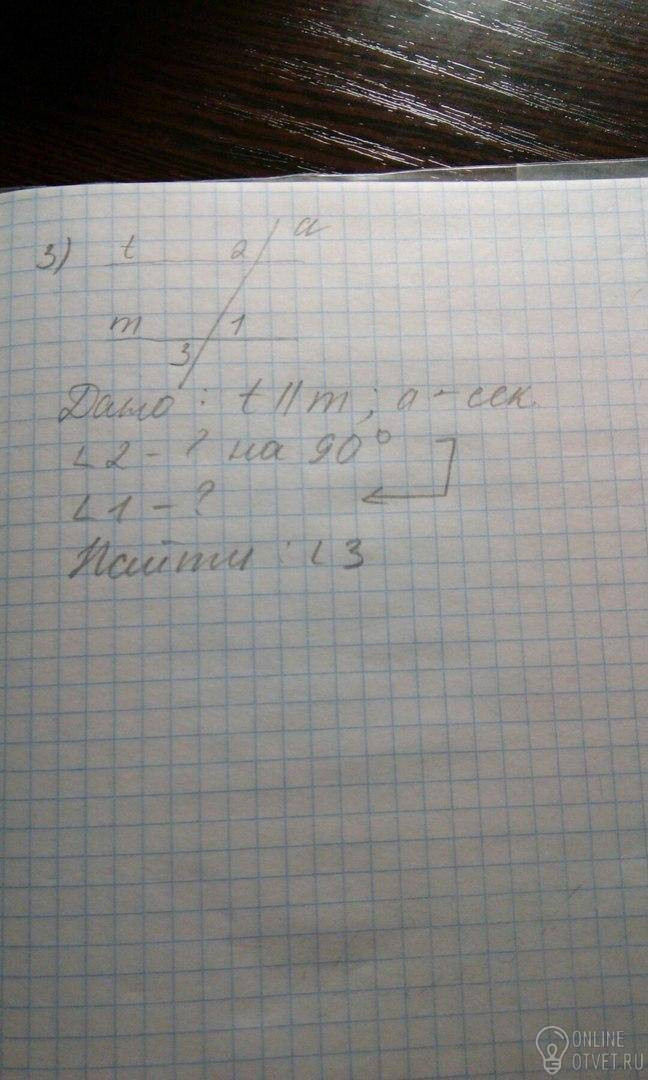 3) t 2 a
m 3 1
Дано: t || m; a - сек.
∠2 - ? на 90°
∠1 - ?
Найти: ∠3
ONLINE
OTVET.RU